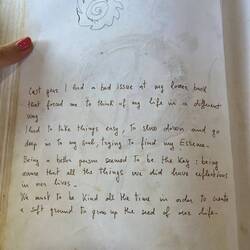 Last year I had a bad issue at my lower back
that forced me to think of my life in a different
way.
I had to take things easy, to slow down and go
deep in to my soul, trying to find my Essence.
Being a better person seemed to be the key: being
aware that all the things we did have reflections
in our lives.
We must to be kind all the time in order to create
a soft ground to grow up the seed of our life.